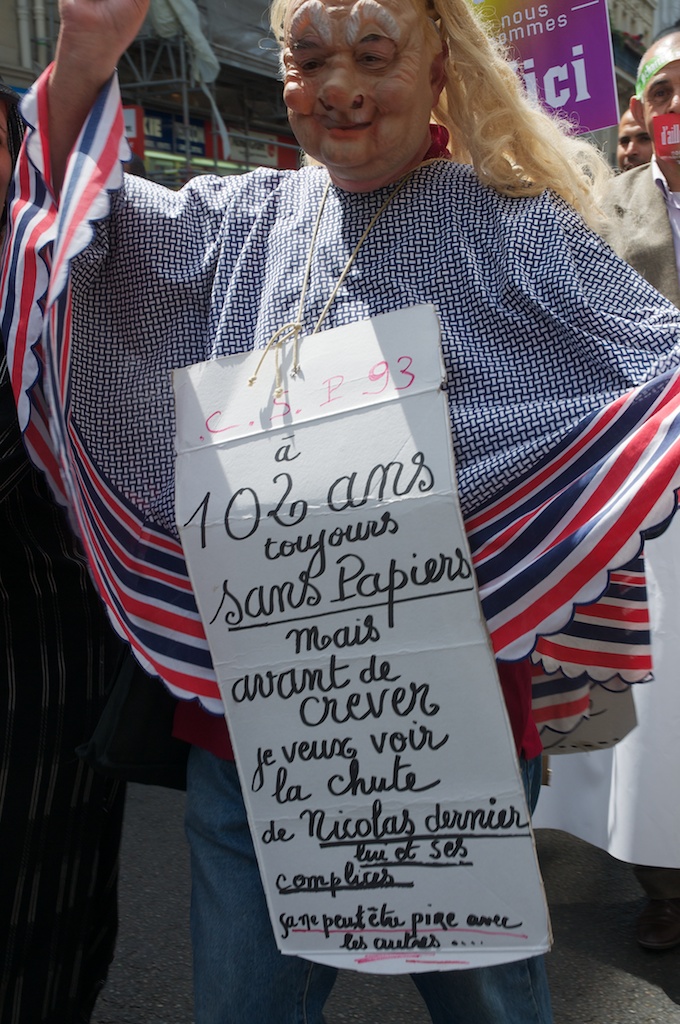 nous
sommes
ici
KIE
d'ail
.C. S. P 93
à
102 ans
toujours
sans Papiers
mais
avant de
crever
je veux voir
la chute
de Nicolas dernier
lui et ses
complices
ça ne peut être pire avec
les autres ....